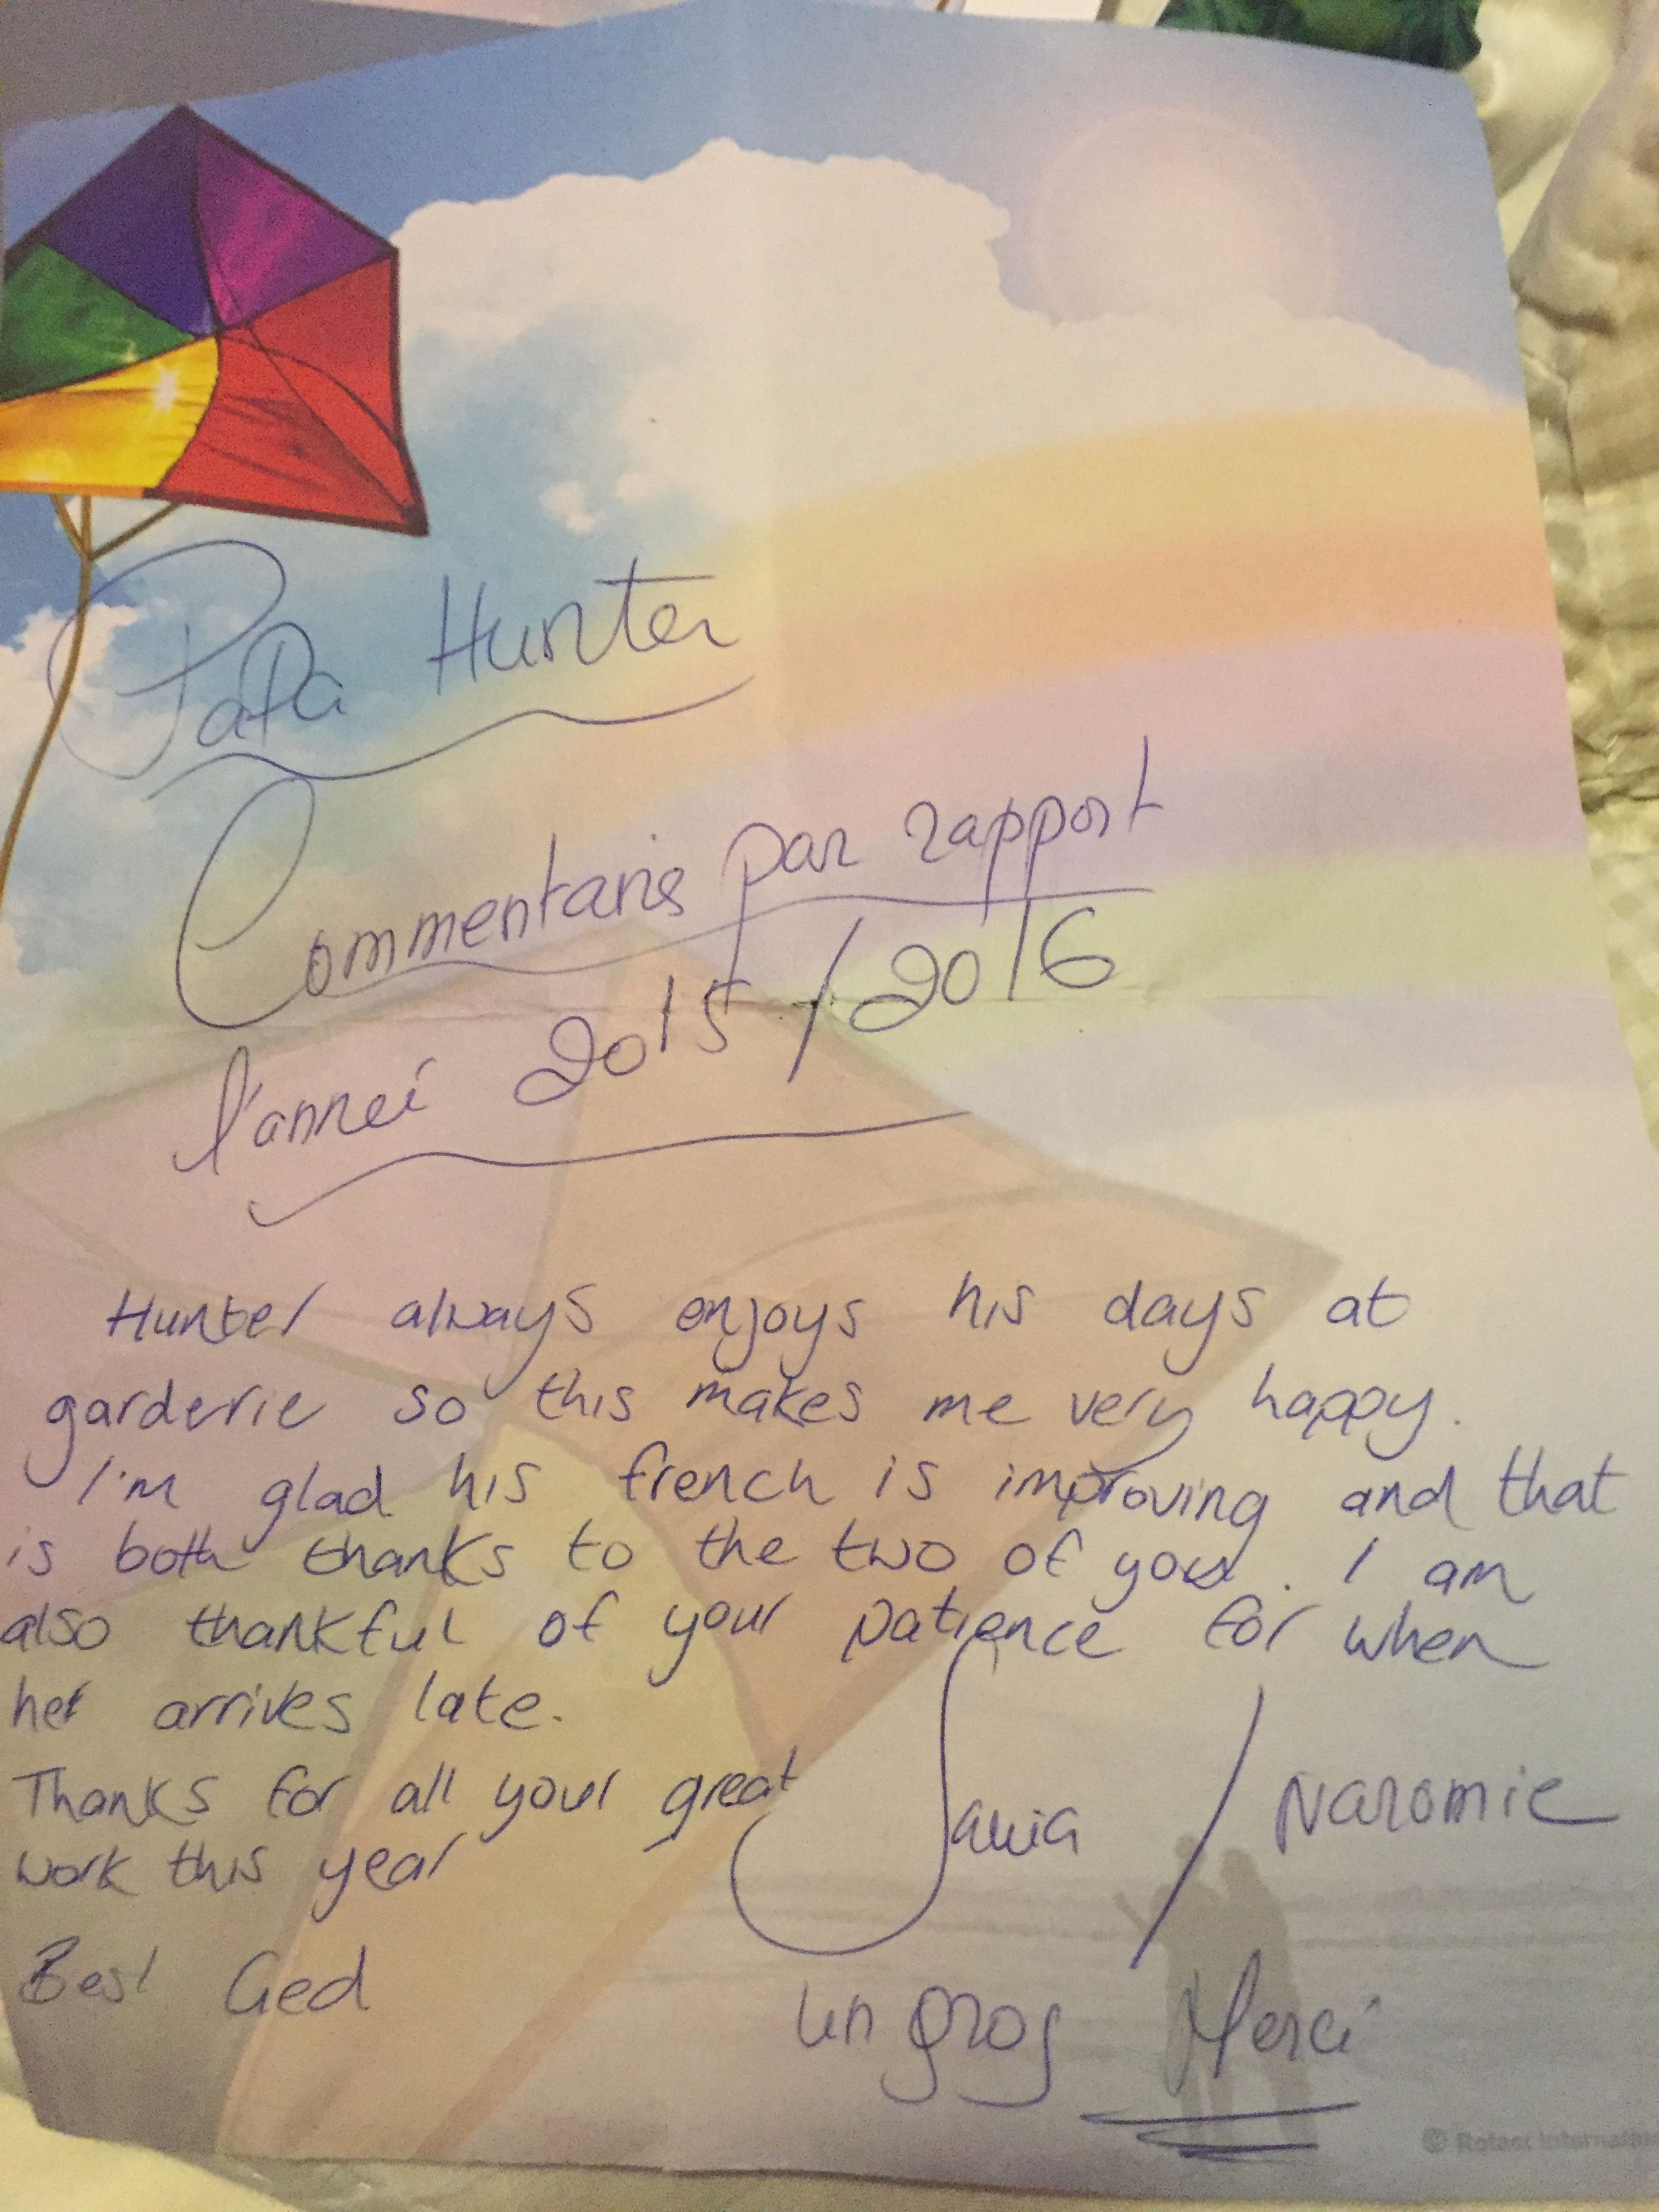 Papa Hunter
Commentaris par rapport
l'anneé 2015/2016
Hunter always enjoys his days at
garderie so this makes me very happy.
I'm glad his french is improving and that
is both thanks to the two of you. I am
also thankful of your patience for when
he arrives late.
Thanks for all your great
work this year
Best Ged
/ Naromie
un gros Merci